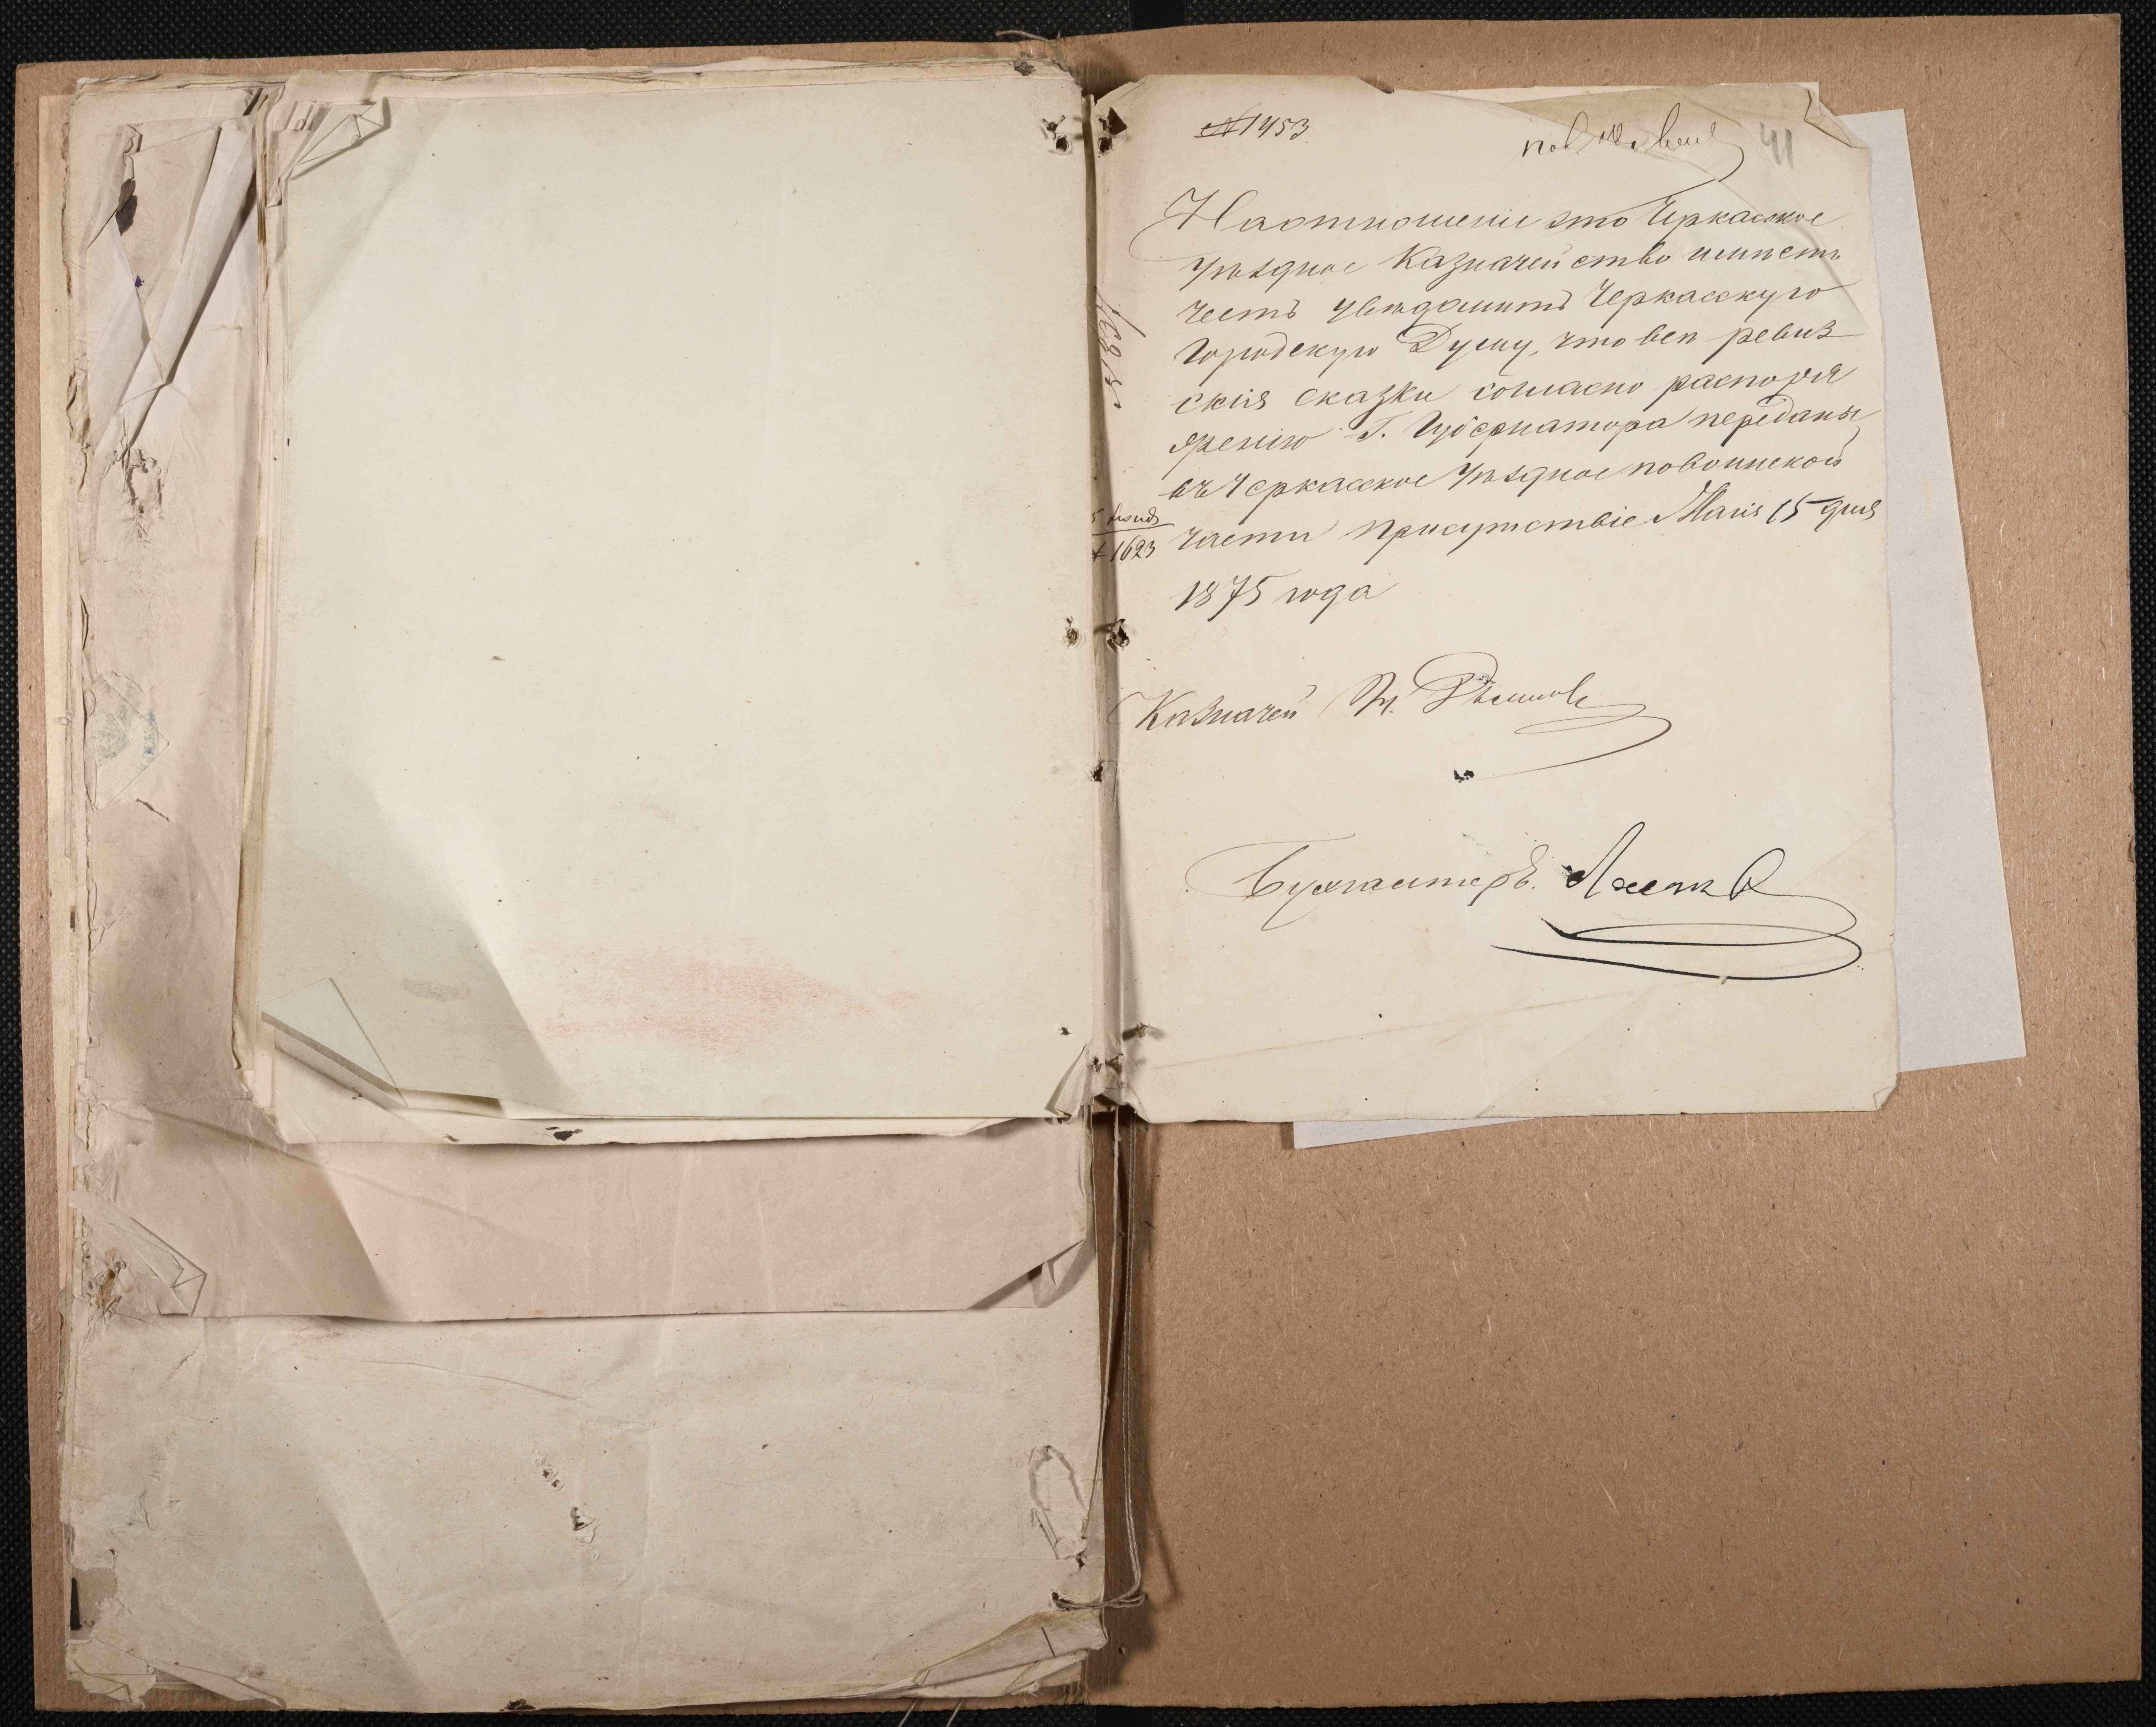 № 1453
41
На отношеніе это Черкаское
Уѣздное Казначейство имѣетъ
честь увѣдомить Черкасскую
Городскую Думу, что всѣ ревиз
скія сказки согласно распоря
женію Г. Губернатора переданы
въ Черкасское Уѣздное по воинской
части Присутствіе Маія 15 дня
1875 года
1623
Казначей
Бухгалтеръ